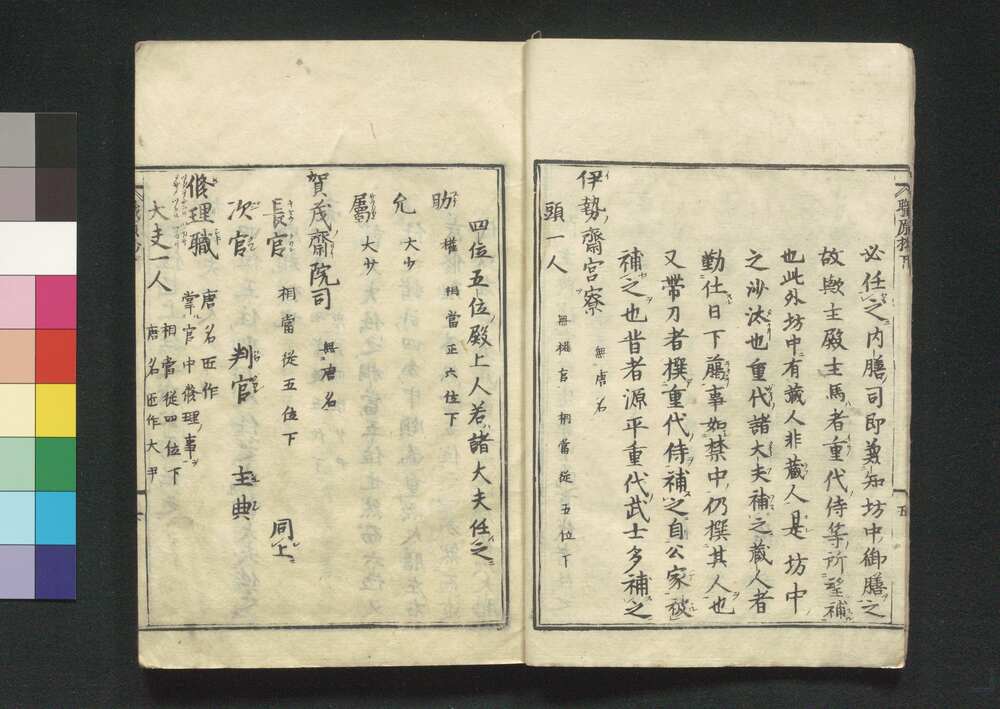 必任之内膳司即兼知坊中御膳之
故歟主殿主馬者重代侍等所望補
也此外坊中有蔵人非蔵人是坊中
之沙汰也重代諸大夫補之蔵人者
勤仕日下臈事如禁中仍撰其人也
又帯刀者撰重代侍補之自公家被
補之也昔者源平重代武士多補之
伊勢齋宮寮 無唐名
頭一人 無權官 相當從五位下
五
四位五位殿上人若諸大夫任之
助 權 相當正六位下
允 大少
屬 大少
賀茂齋院司 無唐名
長官 相當從五位下
次官 判官 主典 同上
修理職 唐名匠作
掌官中修理事
大夫一人 相當從四位下
唐名匠作大尹